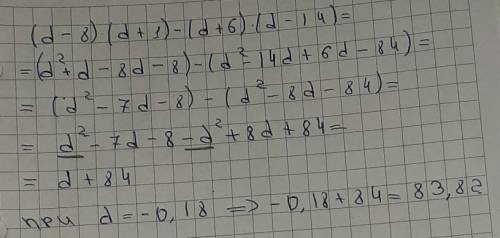 (d-8)(d+1)-(d+6)·(d-14)=
=(d²+d-8d-8)-(d²-14d+6d-84)=
=(d²-7d-8)-(d²-8d-84)=
= d²-7d-8-d²+8d+84=
= d+84
при d=-0,18 => -0,18+84=83,82